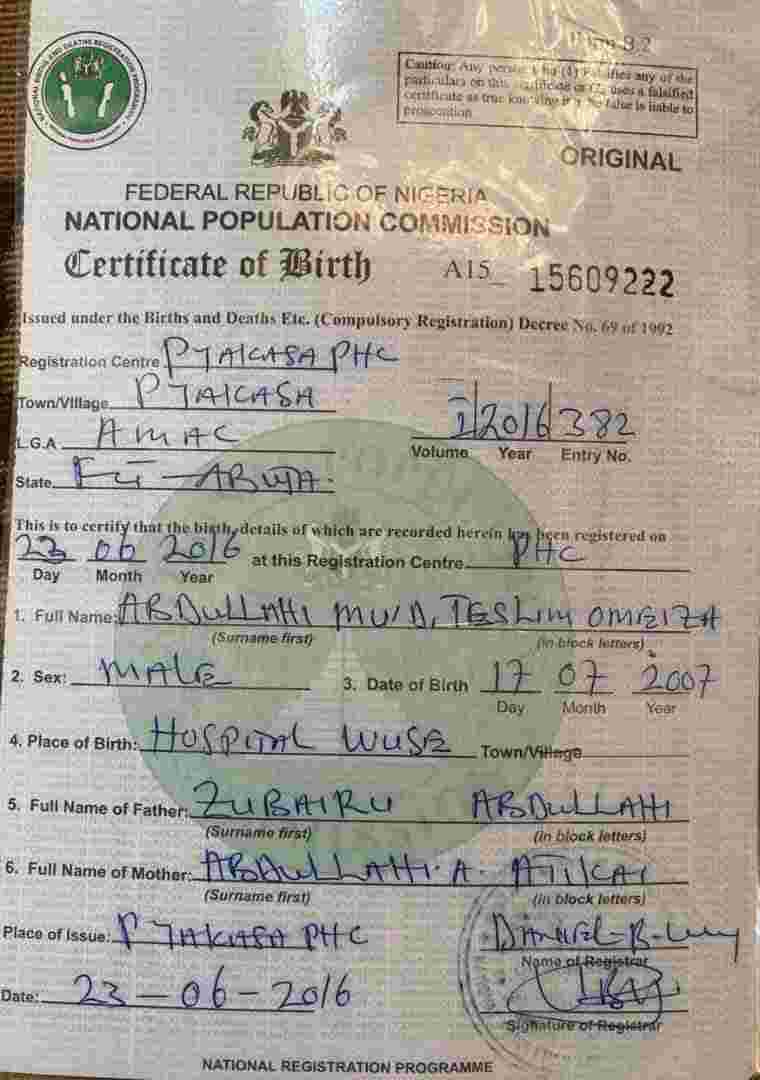 NATIONAL BIRTHS AND DEATHS REGISTRATION PROGRAMME
Form B.2
Caution: Any person who (1) Falsifies any of the
particulars on this certificate or (2) uses a falsified
certificate as true knowing it to be false is liable to
prosecution
ORIGINAL
FEDERAL REPUBLIC OF NIGERIA
NATIONAL POPULATION COMMISSION
Certificate of Birth A15_ 15609222
Issued under the Births and Deaths Etc. (Compulsory Registration) Decree No. 69 of 1992
Registration Centre PYAKASA PHC
Town/Village PYAKASA
L.G.A AMAC
1 2016 382
Volume Year Entry No.
State FCT - ABUJA.
This is to certify that the birth, details of which are recorded herein has been registered on
23 06 2016 at this Registration Centre PHC
Day Month Year
1. Full Name: ABDULLAHI MU'D, TESLIM OMEIZA
(Surname first) (in block letters)
2. Sex: MALE 3. Date of Birth 17 07 2007
Day Month Year
4. Place of Birth: HOSPITAL WUSE Town/Village
5. Full Name of Father: ZUBAIRU ABDULLAHI
(Surname first) (in block letters)
6. Full Name of Mother: ABDULLAHI. A.
(Surname first) (in block letters)
Place of Issue: PYAKASA PHC DANIEL B.
Name of Registrar
Date: 23-06-2016
Signature of Registrar
NATIONAL REGISTRATION PROGRAMME